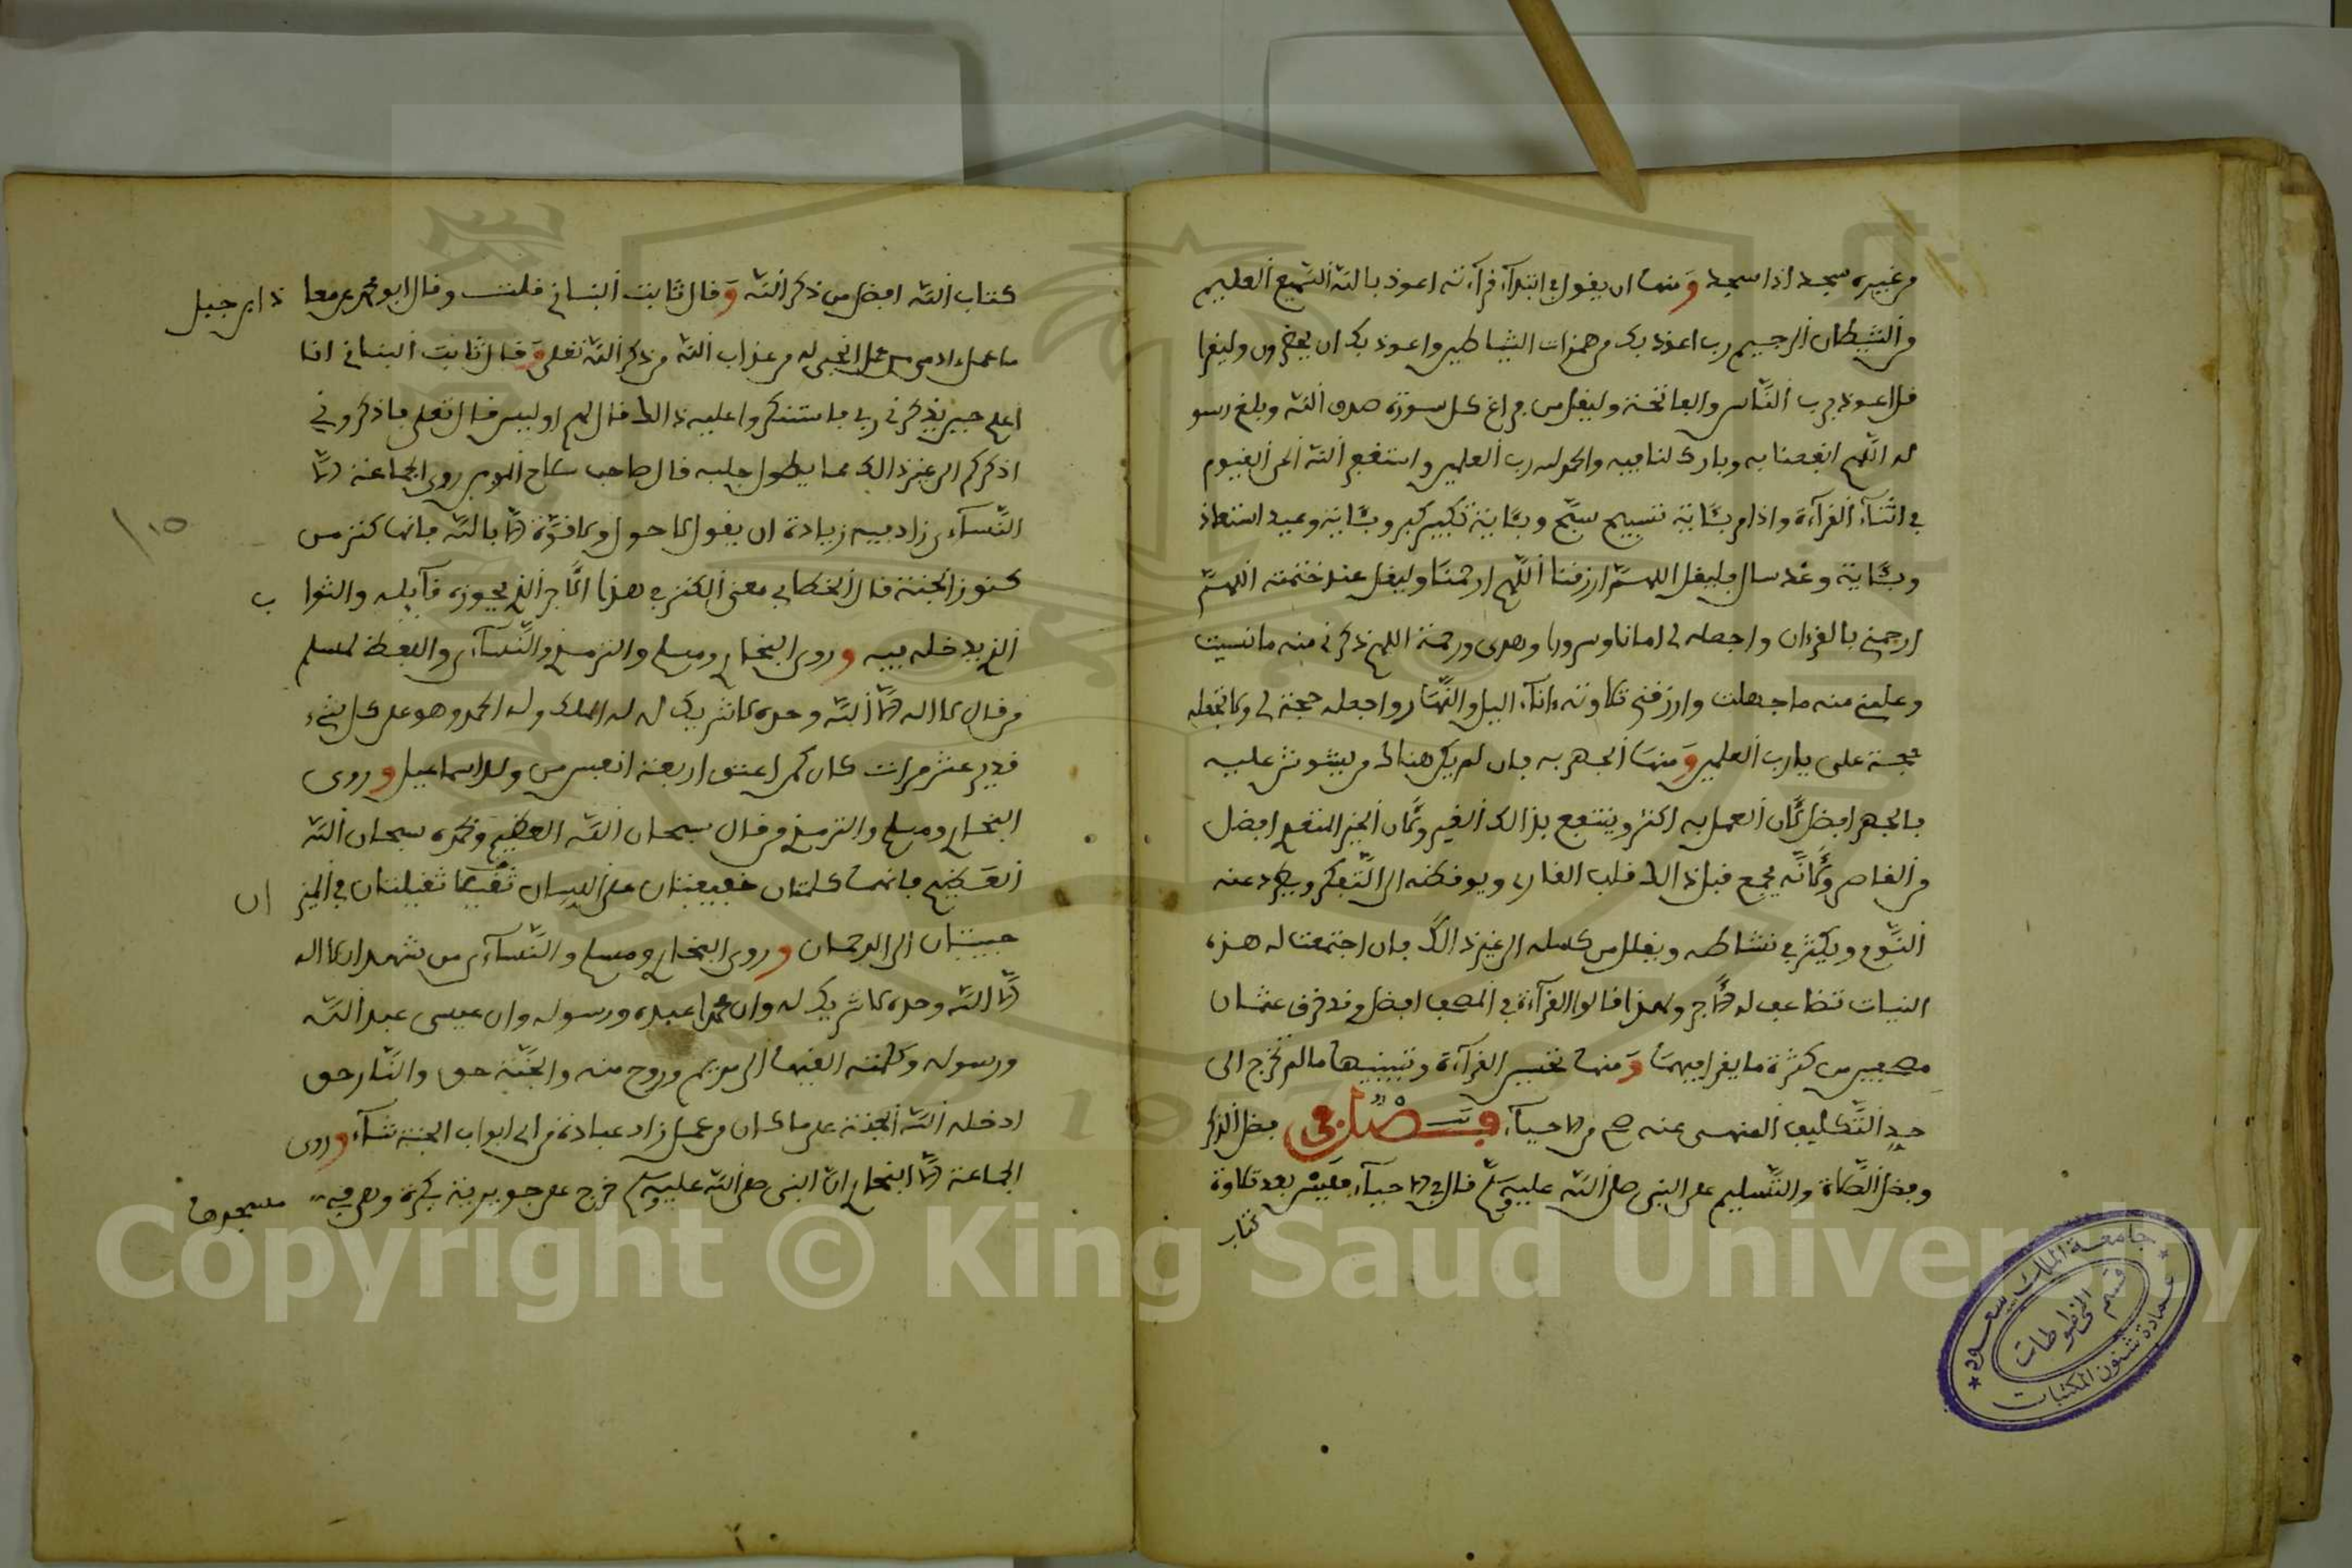 من غيره سجد اذا سجد ومنها ان يقول في ابتدآء قرآءته اعوذ بالله السميع العليم
من الشيطان الرجيم رب اعوذ بك من همزات الشياطين واعوذ بك ان يحضرون وليقرا
قل اعوذ برب الناس والفاتحة وليقل من فراغ كل سورة صدق الله وبلغ رسو
له اللهم انفعنا به وبارك لنا فيه والحمد لله رب العلمين واستغفر الله الحي القيوم
في اثنآء القرآءة واذا مر بئاية تسبيح سبح وبئاية تكبير كبر وبئاية وعيد استعاذ
وبئاية وعد سال فليقل اللهم ارزقنا اللهم ارحمنا وليقل عند ختمته اللهم
ارحمني بالقرءان واجعله لي اماما ونورا وهدى ورحمة اللهم ذكرني منه ما نسيت
وعلمني منه ما جهلت وارزقني تلاوته ءانآء اليل والنهار واجعله حجة لي ولا تجعله
حجة علي يا رب العلمين ومنها الجهر به فان لم يكن هناك من يشوش عليه
فالجهر افضل لأن العمل به اكثر وينتفع بذالك الغير ولأن الخير المتعدي افضل
من القاصر ولأنه يجمع قبل ذالك قلب القارئ ويوقظه الى التفكر ويطرد عنه
النوم ويكثر في نشاطه ويقلل من كسله الى غير ذالك فان اجتمعت له هذه
النيات تضاعف له الأجر ولهذا قالوا القرآءة في المصحف افضل وقد خرق عثمان
مصحفين من كثرة ما يقرا فيهما ومنها تحسين القرآءة وتبيينها ما لم تخرج الى
حد التكليف المنهي عنه صح من الاحيآء فصل في فضل الذكر
وفضل الصلاة والتسليم على النبي صلى الله عليه وسلم قال في الاحيآء فليس بعد تلاوة
كتاب
كتاب الله افضل من ذكر الله وقال ثابت البناني قلت وقال ابو محمد عن معا ذ ابن جبل
ما عمل ءادمي من عمل انجى له من عذاب الله من ذكر الله تعلى وقال ثابت البناني انا
اعلم حين يذكرني ربي فاستنكروا عليه ذالك قال لهم اوليس قال تعلى فاذكروني
اذكركم الى غير ذالك مما يطول جلبه قال صاحب سلاح المومن روى الجماعة الا
النسآءي زاد فيه زيادة ان يقول لا حول ولا قوة الا بالله فانها كنز من
١٠٥
كنوز الجنة قال الخطابي معنى الكنز في هذا الأجر الذي يحوزه قآيله والثوا ب
الذي يدخله فيه وروى البخاري ومسلم والترمذي والنسآءي واللفظ لمسلم
من قال لا اله الا الله وحده لا شريك له له الملك وله الحمد وهو على كل شيء
قدير عشر مرات كان كمن اعتق اربعة انفس من ولد اسماعيل وروى
البخاري ومسلم والترمذي من قال سبحان الله العظيم وبحمده سبحان الله
العظيم فانهما كلمتان خفيفتان على اللسان ثقيلتان في الميز ان
حبيبتان الى الرحمان وروى البخاري ومسلم والنسآءي من شهد ان لا اله
الا الله وحده لا شريك له وان محمدا عبده ورسوله وان عيسى عبد الله
ورسوله وكلمته القيها الى مريم وروح منه والجنة حق والنار حق
ادخله الله الجنة على ما كان من عمل زاد عبادة من اي ابواب الجنة شآء وروى
الجماعة الا البخاري ان النبي صلى الله عليه وسلم خرج على جويرية بكرة وهي في مسجدها
جامعة الملك سعود
قسم المخطوطات
عمادة شئون المكتبات
Copyright © King Saud University